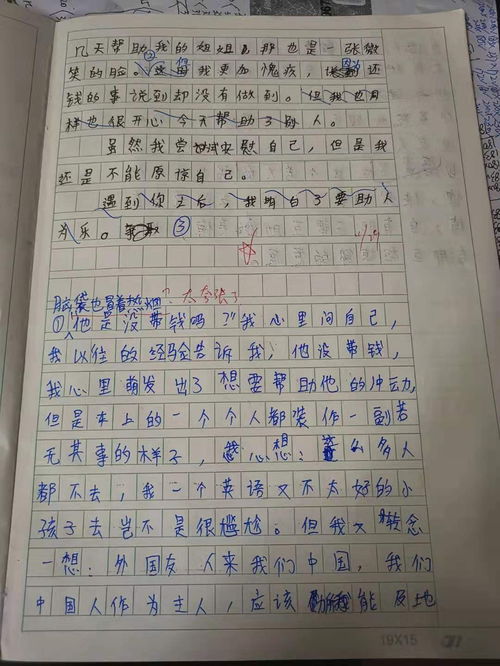 几天帮助我的姐姐,那也是一张微
笑的脸。②这但我更加愧疚,因为还
钱的事说到却没有做到。但我也同
样也很开心今天帮助了别人。
虽然我尝试安慰自己,但是我
还是不能原谅自己。
遇到你之后,我明白了要助人
为乐。③
11/29
脑袋也冒着热烟?太夸张了
①"他是没带钱吗?"我心里问自己,
我以往的经验告诉我,他没带钱,
我心里萌发出了想要帮助他的冲动,
但是车上的一个个人都装作一副若
无其事的样子,我心想:这么多人
都不去,我一个英语又不太好的小
孩子去岂不是很尴尬。但我又转念
一想:外国友人来我们中国,我们
中国人作为主人,应该 能及地
19×15